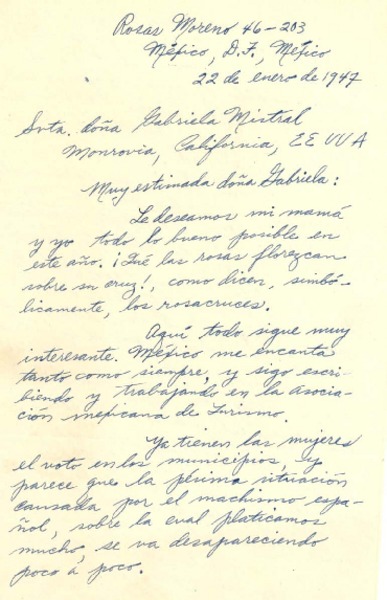 Rosas Moreno 46-203
México, D.F., México
22 de enero de 1947
Srta. doña Gabriela Mistral
Monrovia, California, EE UU A
Muy estimada doña Gabriela:
Le deseamos mi mamá
y yo todo lo bueno posible en
este año. ¡Qué las rosas florezcan
sobre su cruz!, como dicen, simbó-
licamente, los rosacruces.
Aquí todo sigue muy
interesante. México me encanta
tanto como siempre, y sigo escri-
biendo y trabajando en la Asocia-
ción mexicana de Turismo.
Ya tienen las mujeres
el voto en los municipios, y
parece que la pésima situación
causada por el machismo espa-
ñol, sobre la cual platicamos
mucho, se va desapareciendo
poco a poco.